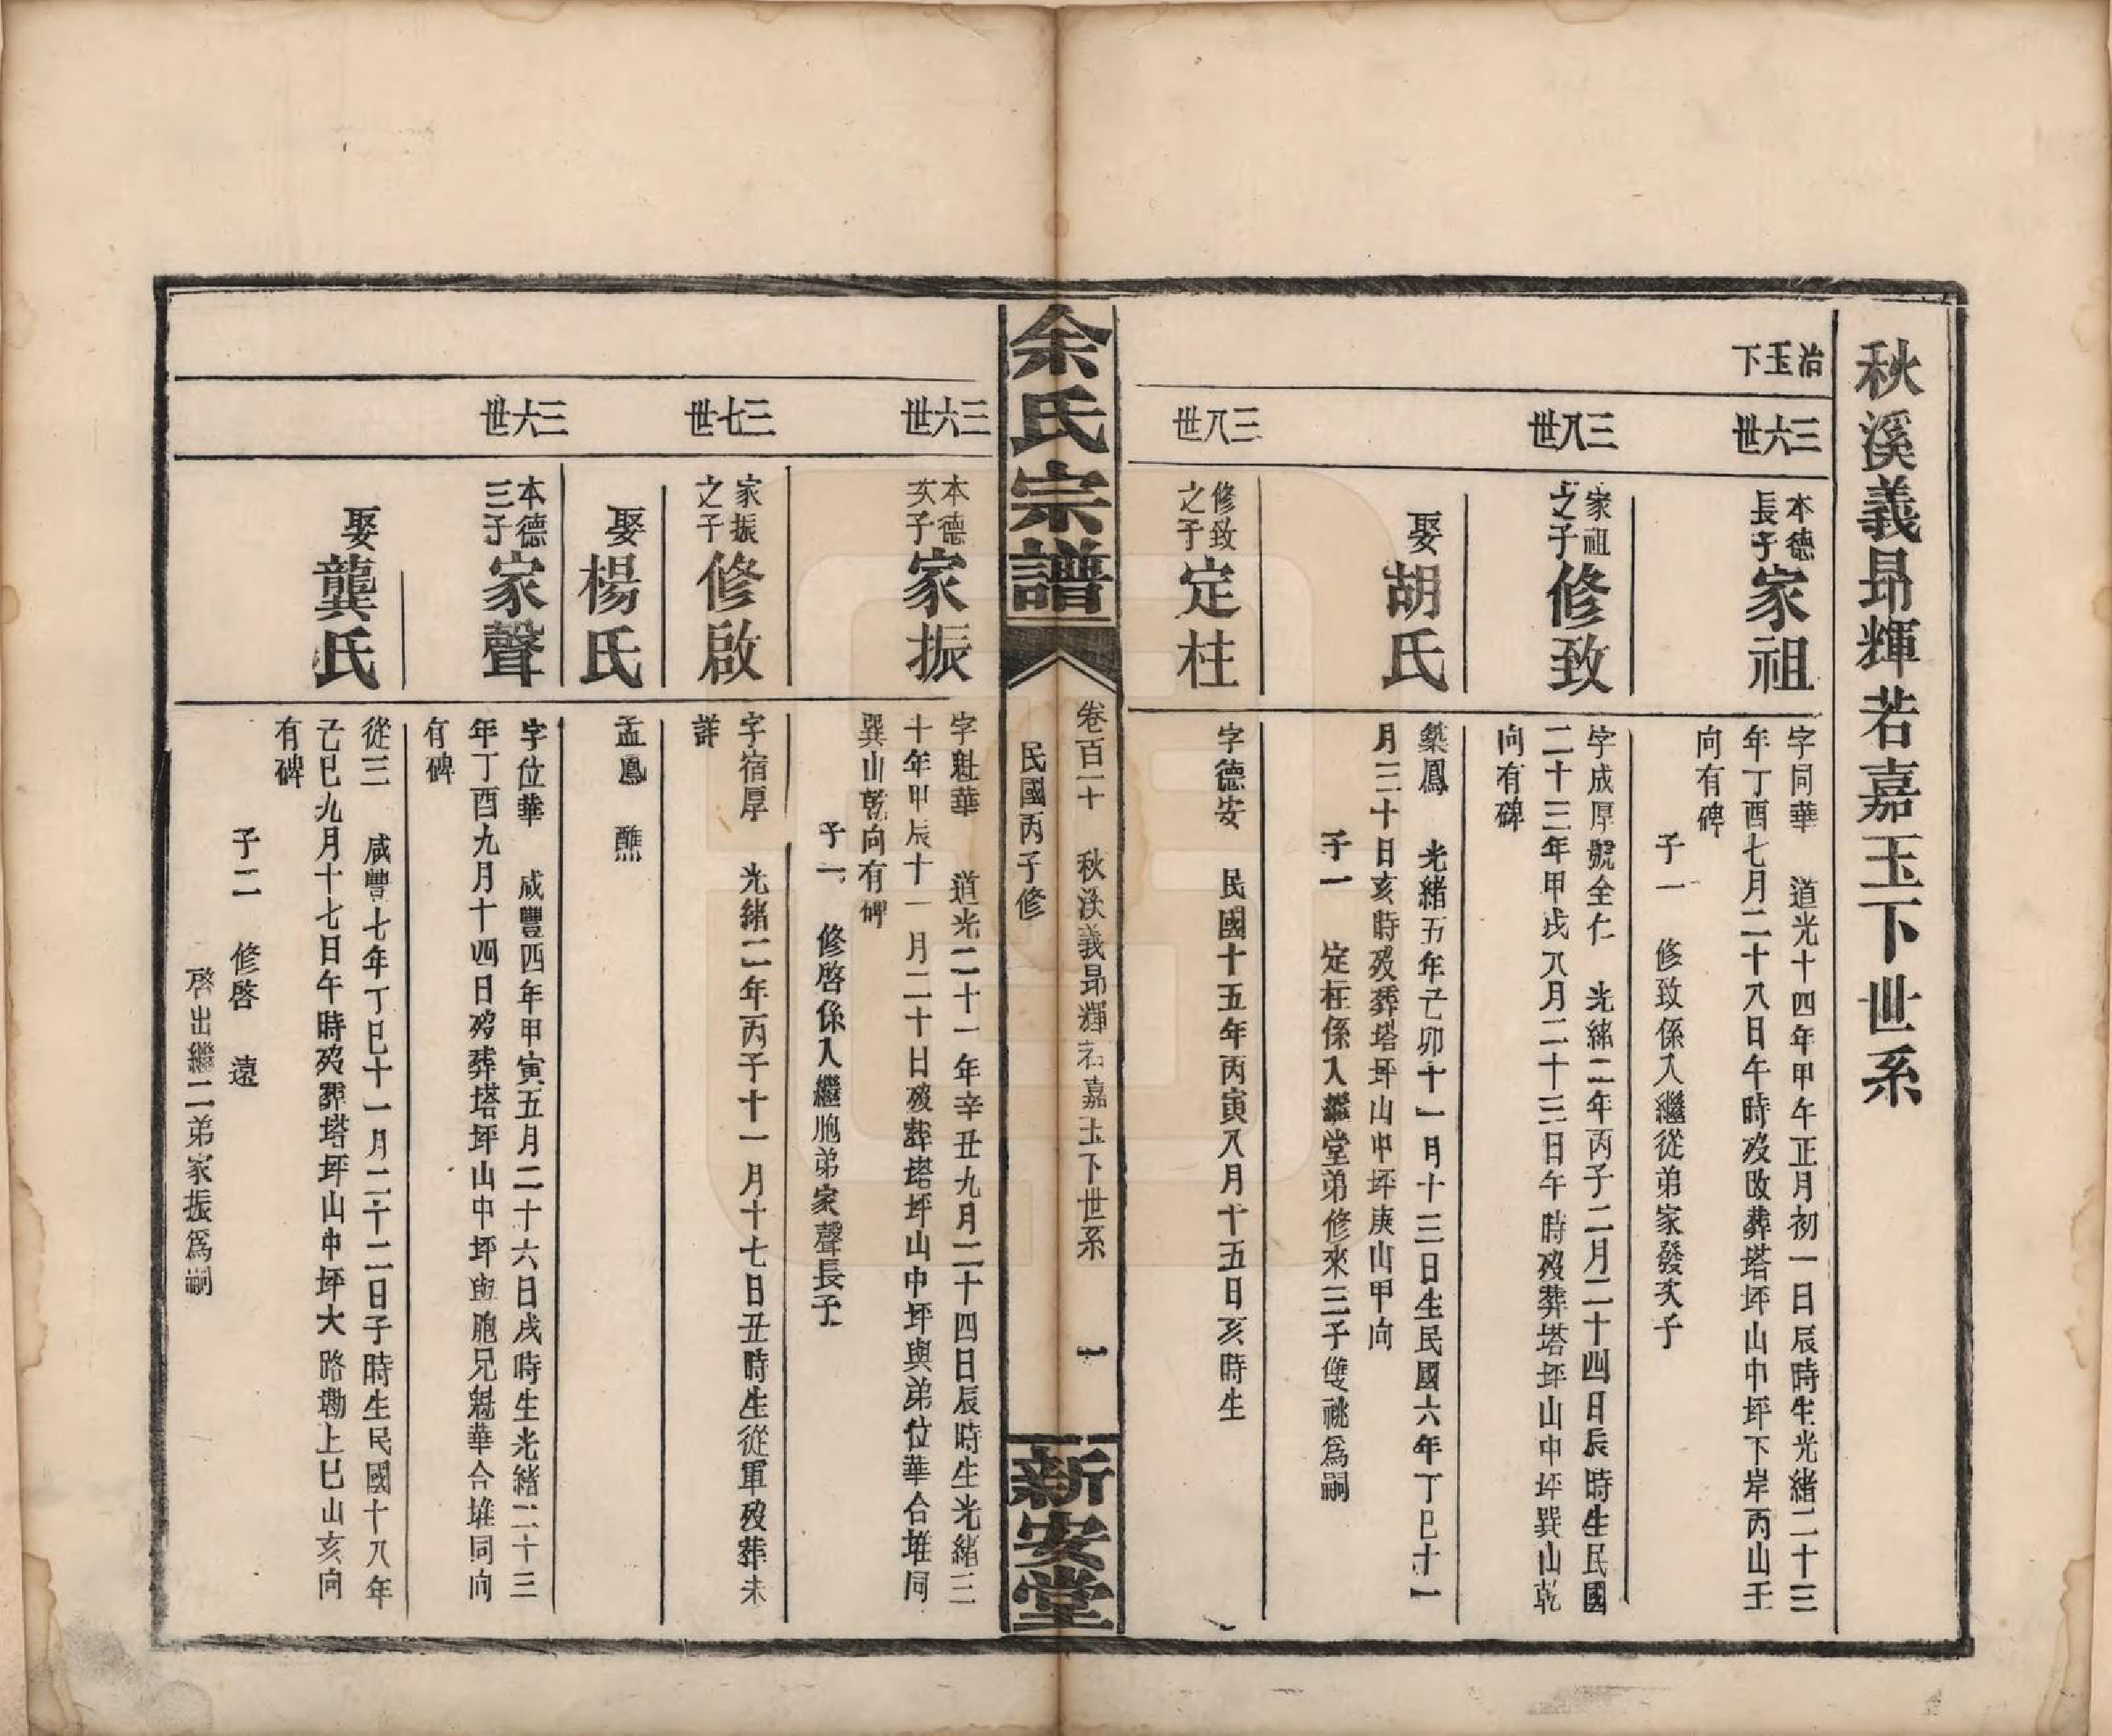 秋溪義昻輝若嘉玉下世系
治玉下
三六世
本德長子家祖
字同華 道光十四年甲午正月初一日辰時生光緒二十三
年丁酉七月二十八日午時歿改葬塔坪山中坪下岸丙山壬
向有碑
子一 修致係入繼從弟家發次子
三八世
家祖之子修致
字成厚號全仁 光緒二年丙子二月二十四日辰時生民國
二十三年甲戌八月二十三日午時歿葬塔坪山中坪巽山乾
向有碑
娶胡氏
榘鳳 光緒五年己卯十一月十三日生民國六年丁巳十一
月三十日亥時歿葬塔坪山中坪庚山甲向
子一 定柱係入繼堂弟修來三子雙祧爲嗣
三八世
修致之子定柱
字德安 民國十五年丙寅八月十五日亥時生
余氏宗譜
卷百一十 秋溪義昻輝若嘉玉下世系 一
民國丙子修
新安堂
三六世
本德次子家振
字魁華 道光二十一年辛丑九月二十四日辰時生光緒三
十年甲辰十一月二十日歿葬塔坪山中坪與弟位華合堆同
巽山乾向有碑
子一 修啓係入繼胞弟家聲長子
三七世
家振之子修啟
字宿厚 光緒二年丙子十一月十七日丑時生從軍歿葬未
詳
娶楊氏
孟鳳 醮
三六世
本德三子家聲
字位華 咸豐四年甲寅五月二十六日戌時生光緒二十三
年丁酉九月十四日歿葬塔坪山中坪與胞兄魁華合堆同向
有碑
娶龔氏
從三 咸豐七年丁巳十一月二十二日子時生民國十八年
己巳九月十七日午時歿葬塔坪山中坪大路塝上巳山亥向
有碑
子二 修啓 遠
啓出繼二弟家振爲嗣